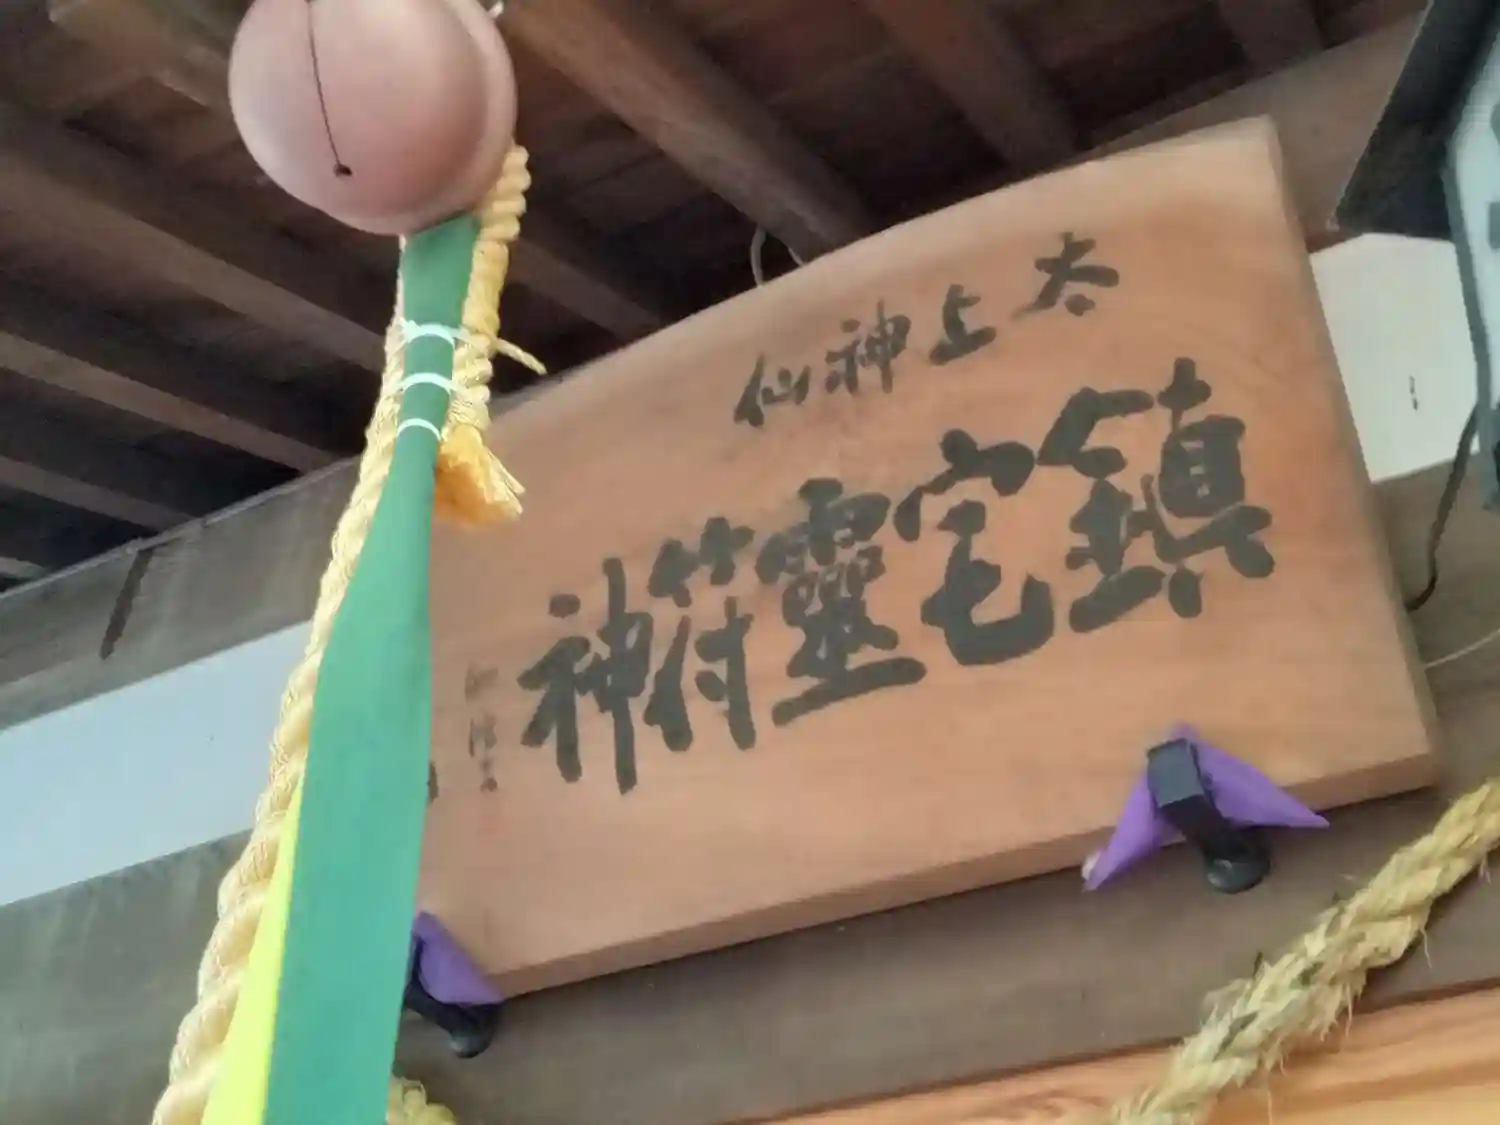 太上神仙
鎮宅靈符神